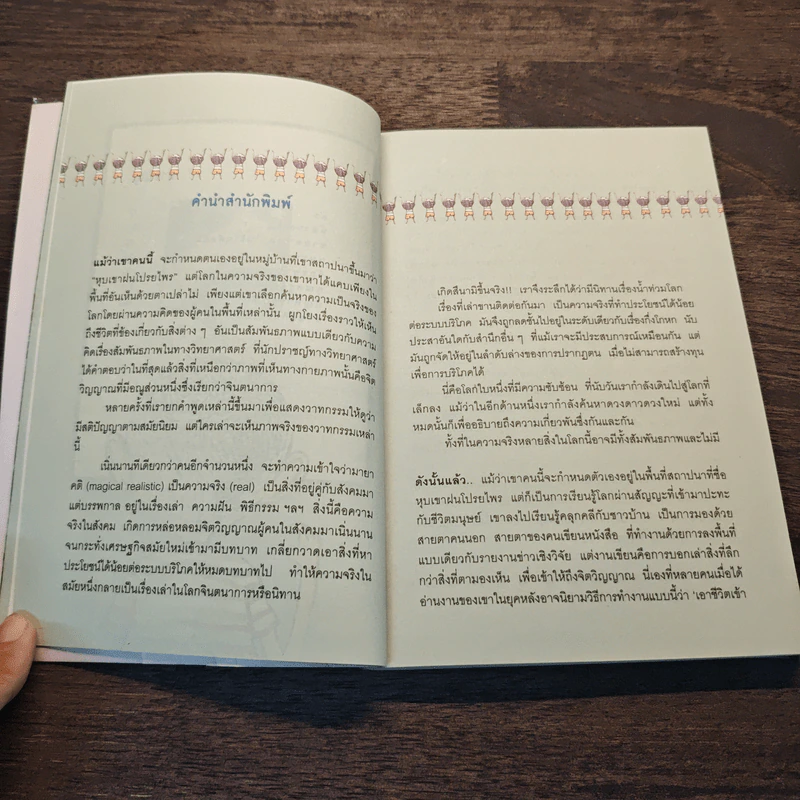 คำนำสำนักพิมพ์
แม้ว่าเขาคนนี้ จะกำหนดตนเองอยู่ในหมู่บ้านที่เขาสถาปนาขึ้นมาว่า
“หุบเขาฝนโปรยไพร” แต่โลกในความจริงของเขาหาได้แคบเพียงใน
พื้นที่อันเห็นด้วยตาเปล่าไม่ เพียงแต่เขาเลือกค้นหาความเป็นจริงของ
โลกโดยผ่านความคิดของผู้คนในพื้นที่เหล่านั้น ผูกโยงเรื่องราวให้เห็น
ถึงชีวิตที่ข้องเกี่ยวกับสิ่งต่าง ๆ อันเป็นสัมพันธภาพแบบเดียวกับความ
คิดเรื่องสัมพันธภาพในทางวิทยาศาสตร์ ที่นักปราชญ์ทางวิทยาศาสตร์
ได้คำตอบว่าในที่สุดแล้วสิ่งที่เหนือกว่าภาพที่เห็นทางกายภาพนั้นคือจิต
วิญญาณที่มีอณูส่วนหนึ่งซึ่งเรียกว่าจินตนาการ
หลายครั้งที่เรายกคำพูดเหล่านี้ขึ้นมาเพื่อแสดงวาทกรรมให้ดูว่า
มีสติปัญญาตามสมัยนิยม แต่ใครเล่าจะเห็นภาพจริงของวาทกรรมเหล่า
นี้
เนิ่นนานทีเดียวกว่าคนอีกจำนวนหนึ่ง จะทำความเข้าใจว่ามายา
คติ (magical realistic) เป็นความจริง (real) เป็นสิ่งที่อยู่คู่กับสังคมมา
แต่บรรพกาล อยู่ในเรื่องเล่า ความฝัน พิธีกรรม ฯลฯ สิ่งนี้คือความ
จริงในสังคม เกิดการหล่อหลอมจิตวิญญาณผู้คนในสังคมมาเนิ่นนาน
จนกระทั่งเศรษฐกิจสมัยใหม่เข้ามามีบทบาท เกลี่ยกวาดเอาสิ่งที่หา
ประโยชน์ได้น้อยต่อระบบบริโภคให้หมดบทบาทไป ทำให้ความจริงใน
สมัยหนึ่งกลายเป็นเรื่องเล่าในโลกจินตนาการหรือนิทาน
เกิดสึนามิขึ้นจริง!! เราจึงระลึกได้ว่ามีนิทานเรื่องน้ำท่วมโลก
เรื่องที่เล่าขานติดต่อกันมา เป็นความจริงที่ทำประโยชน์ได้น้อย
ต่อระบบบริโภค มันจึงถูกลดชั้นไปอยู่ในระดับเดียวกับเรื่องกึ่งโกหก นับ
ประสาอันใดกับสำนึกอื่น ๆ ที่แม้เราจะมีประสบการณ์เหมือนกัน แต่
มันถูกจัดให้อยู่ในลำดับล่างของการปรากฏตน เมื่อไม่สามารถสร้างทุน
เพื่อการบริโภคได้
นี่คือโลกใบหนึ่งที่มีความซับซ้อน ที่นับวันเรากำลังเดินไปสู่โลกที่
เล็กลง แม้ว่าในอีกด้านหนึ่งเรากำลังค้นหาดวงดาวดวงใหม่ แต่ทั้ง
หมดนั้นก็เพื่ออธิบายถึงความเกี่ยวพันซึ่งกันและกัน
ทั้งที่ในความจริงหลายสิ่งในโลกนี้อาจมีทั้งสัมพันธภาพและไม่มี
ดังนั้นแล้ว.. แม้ว่าเขาคนนี้จะกำหนดตัวเองอยู่ในพื้นที่สถาปนาที่ชื่อ
หุบเขาฝนโปรยไพร แต่ก็เป็นการเรียนรู้โลกผ่านสัญญะที่เข้ามาปะทะ
กับชีวิตมนุษย์ เขาลงไปเรียนรู้คลุกคลีกับชาวบ้าน เป็นการมองด้วย
สายตาคนนอก สายตาของคนเขียนหนังสือ ที่ทำงานด้วยการลงพื้นที่
แบบเดียวกับรายงานข่าวเชิงวิจัย แต่งานเขียนคือการบอกเล่าสิ่งที่ลึก
กว่าสิ่งที่ตามองเห็น เพื่อเข้าให้ถึงจิตวิญญาณ นี่เองที่หลายคนเมื่อได้
อ่านงานของเขาในยุคหลังอาจนิยามวิธีการทำงานแบบนี้ว่า ‘เอาชีวิตเข้า